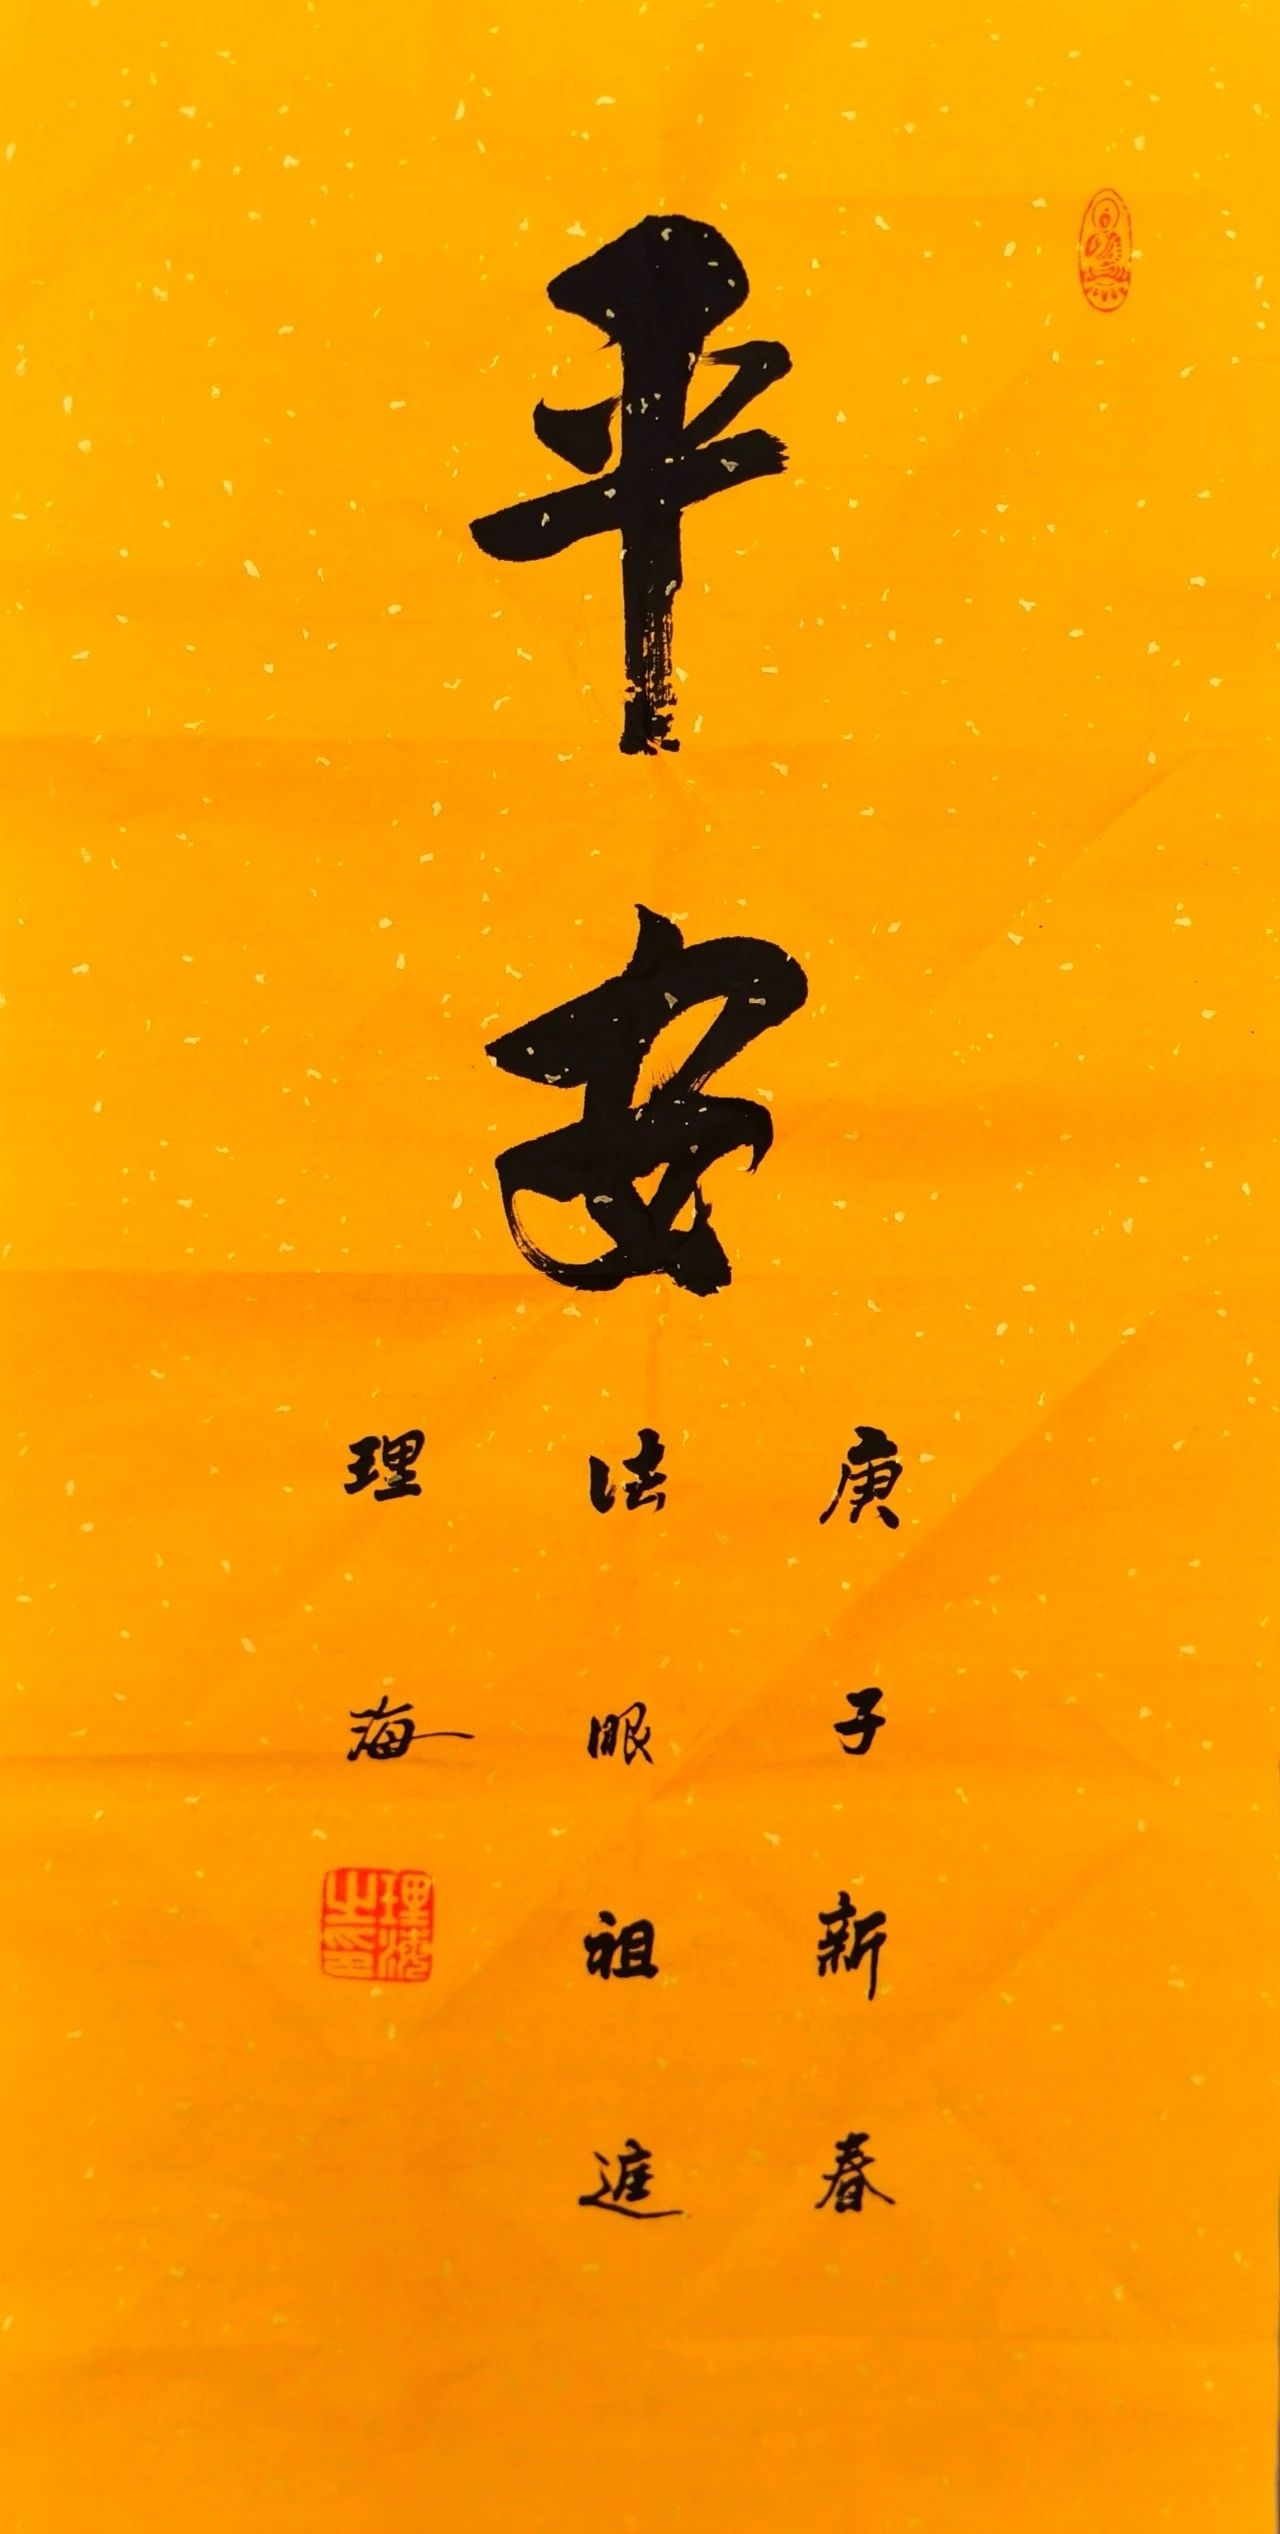 平安
庚子新春
法眼祖遮
理海
理海之印